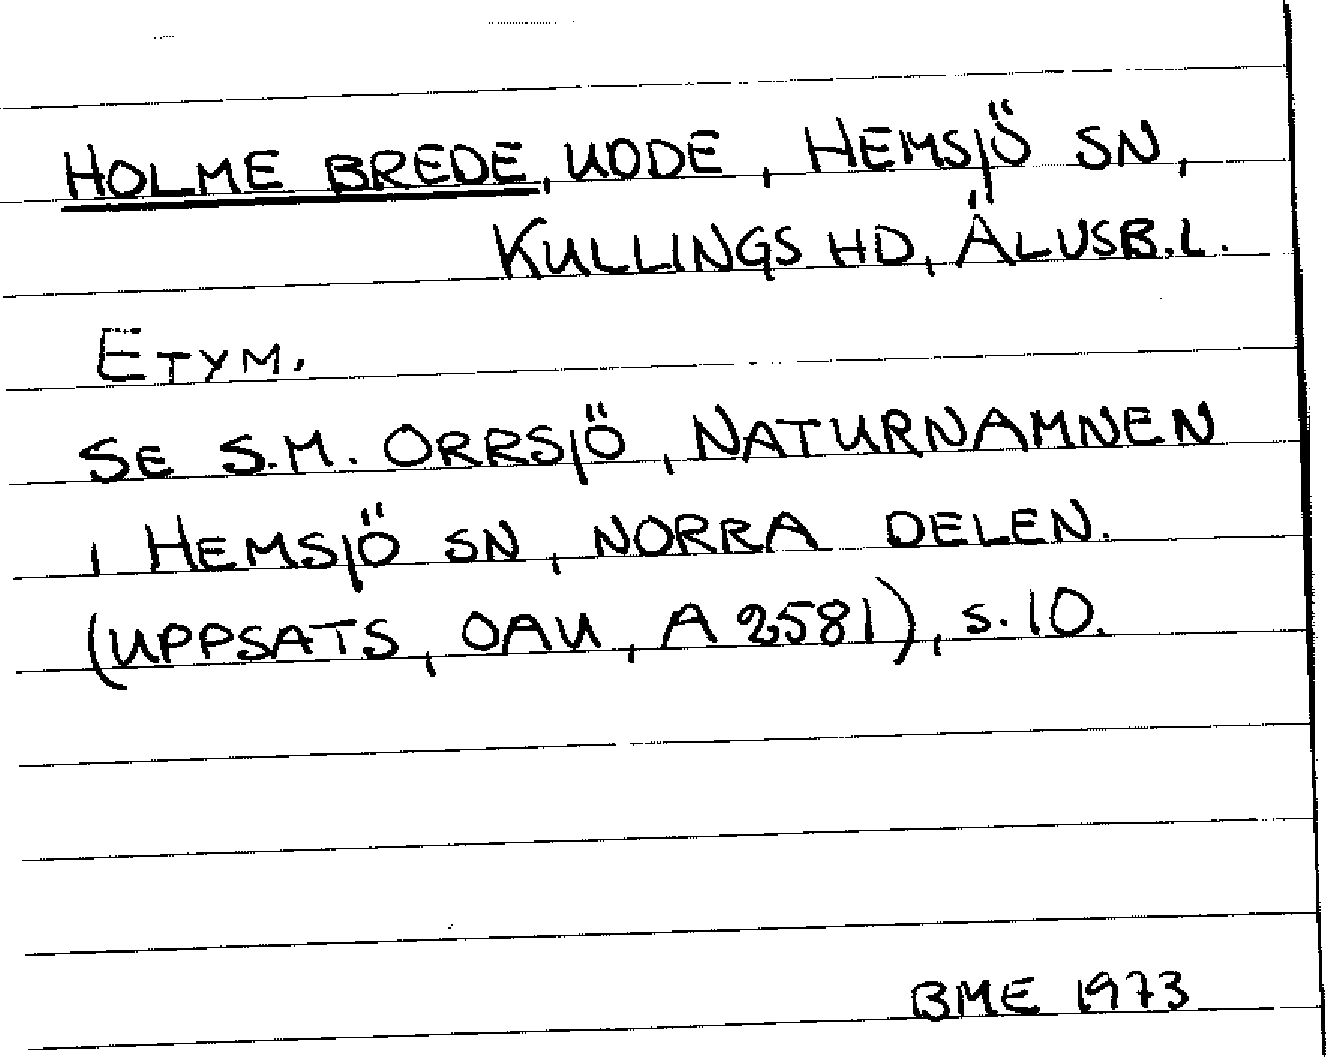 HOLME BREDE, UDDE, HEMSJÖ SN,
KULLINGS HD, ÄLVSB.L.
ETYM.
SE S.M. ORRSJÖ, NATURNAMNEN
I HEMSJÖ SN, NORRA DELEN.
(UPPSATS, OAU, A 2581), S. 10.
BME 1973